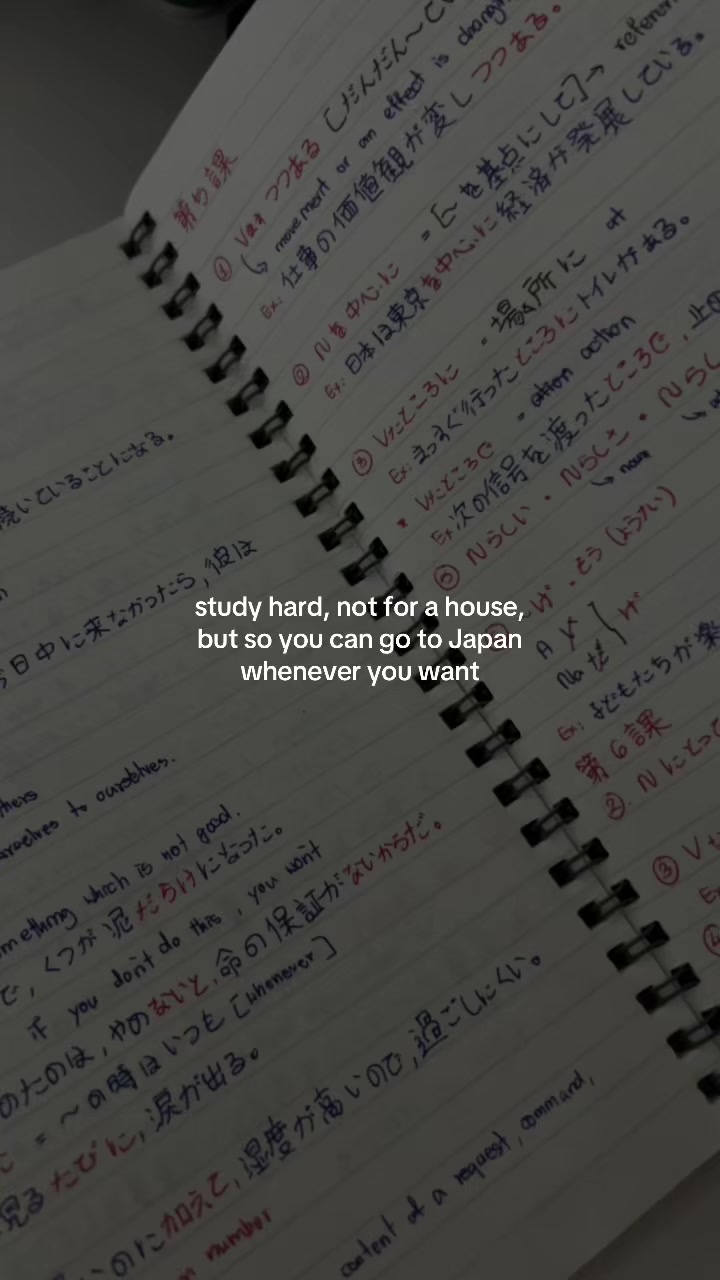 続いていることになる。
今日中に来なかったら, 彼は
thers
ourselves to ourselves.
something which is not good.
で, くつが泥だらけになった。
if you don't do this, you won't
のたのは, やめないと, 命の保証がないからだ。
= ~の時はいつも [whenever]
見るたびに, 涙が出る。
いのに加えて, 湿度が高いので, 過ごしにくい。
number
content of a request, command,
第5課
① Vます つつある [だんだん~
movement or an effect is changin
Ex: 仕事の価値観が変しつつある。
② Nを中心に = [~を基点にして] → referen
Ex: 日本は東京を中心に経済が発展している。
③ Vたところに ・ 場所に at
Ex: まっすぐ行ったところにトイレがある。
・ Vたところで = action
Ex: 次の信号を渡ったところで, 止
⑤ Nらしい ・ Nらしさ ・ Nらし
noun
げ ・ そう (ようたい)
A
Na
げ
Ex: 子どもたちが楽
第6課
②. Nにとって
③ V
Ex
④
study hard, not for a house,
but so you can go to Japan
whenever you want